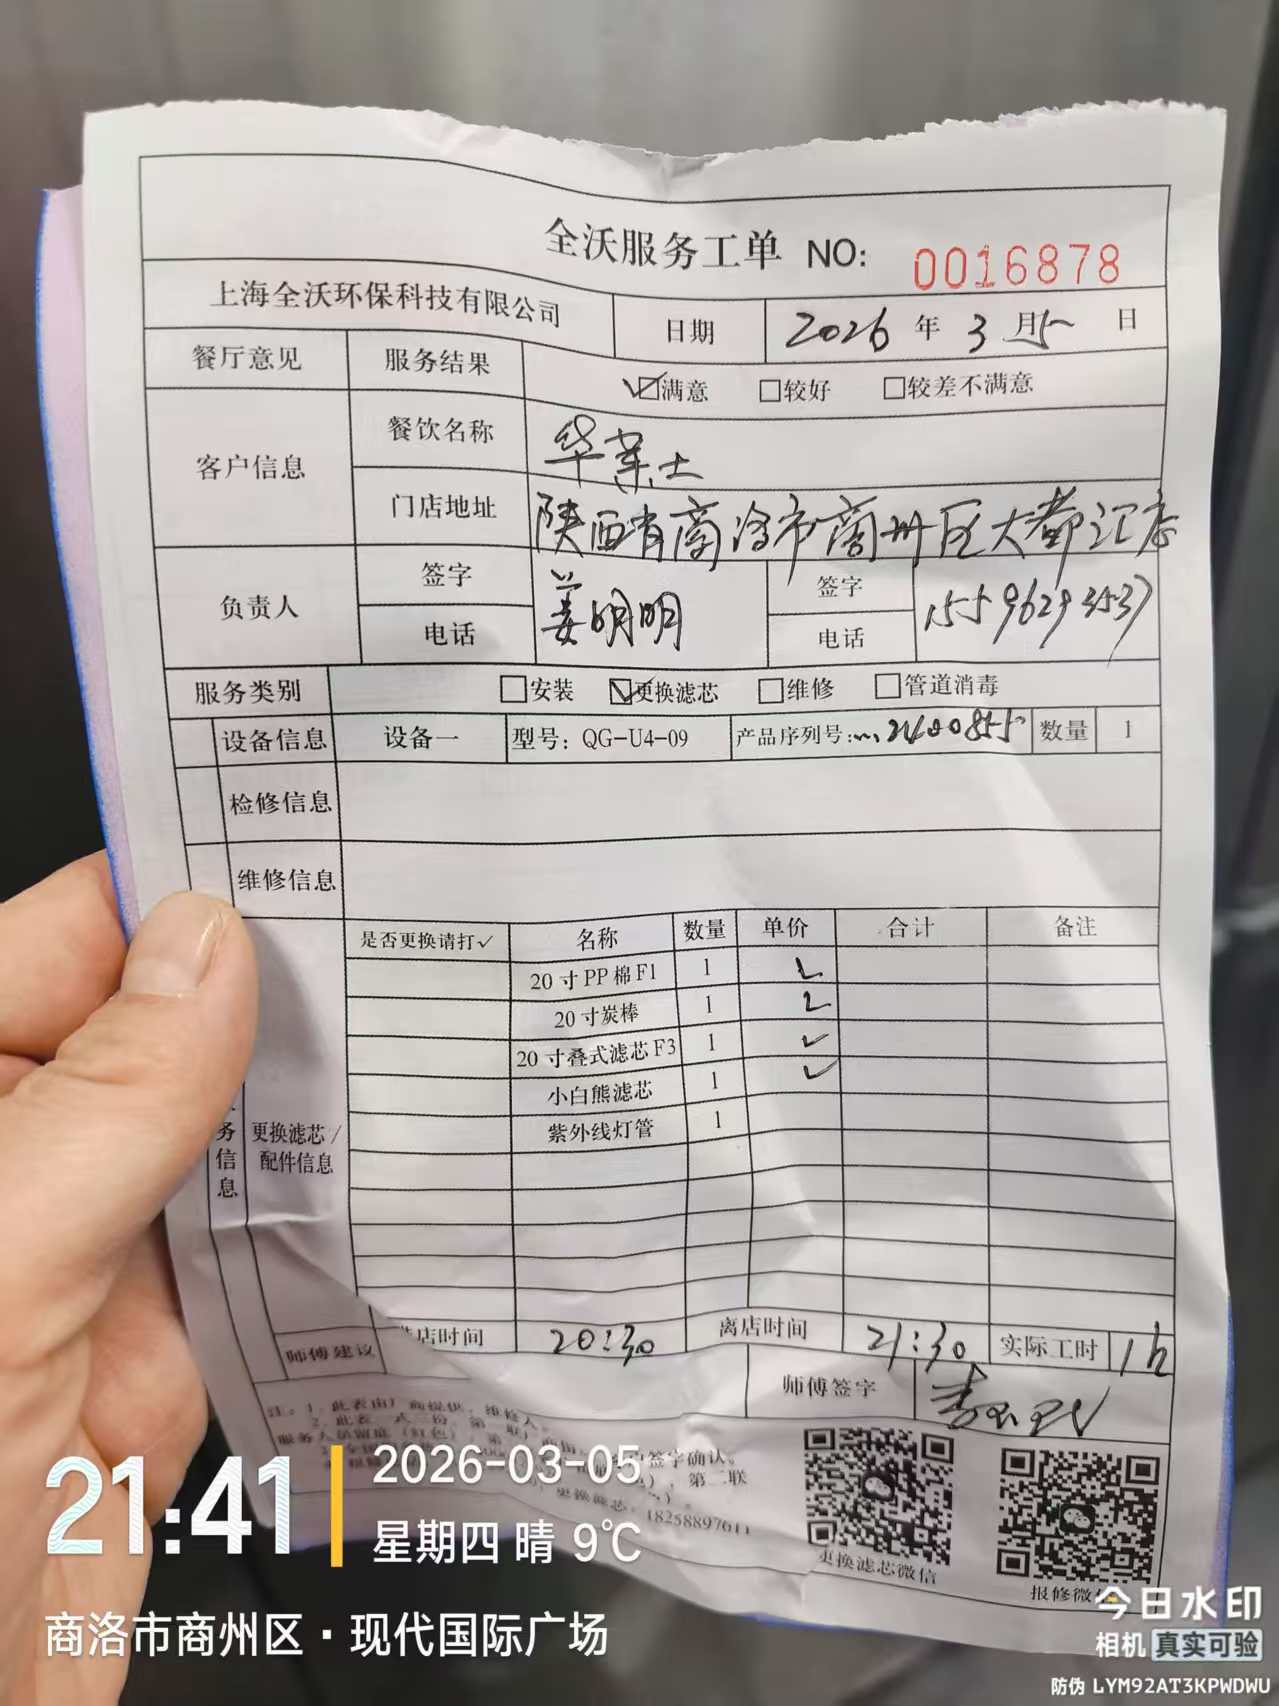 全沃服务工单 NO: 0016878
上海全沃环保科技有限公司 日期 2026年3月5日
餐厅意见 服务结果 ☑满意 □较好 □较差不满意
客户信息 餐饮名称 华莱士
门店地址 陕西省商洛市商州区大都汇店
负责人 签字 姜明明 签字
电话 电话 15596293537
服务类别 □安装 ☑更换滤芯 □维修 □管道消毒
设备信息 设备一 型号:QG-U4-09 产品序列号: 数量 1
检修信息
维修信息
是否更换请打✓ 名称 数量 单价 合计 备注
20寸PP棉F1 1 ✓
20寸炭棒 1 ✓
20寸叠式滤芯F3 1 ✓
小白熊滤芯 1 ✓
紫外线灯管 1
务信息 更换滤芯/
配件信息
店时间 20:30 离店时间 21:30 实际工时 1h
师傅建议 师傅签字
注:1、此表由厂商提供,维修人
签字确认。
2、此表一式三份,第一联
第二联
服务人员留底(红色),第
更换滤芯:18258897611
更换滤芯微信
报修微信
21:41
2026-03-05
星期四 晴 9℃
商洛市商州区·现代国际广场
今日水印
相机 真实可验
防伪 LYM92AT3KPWDWU